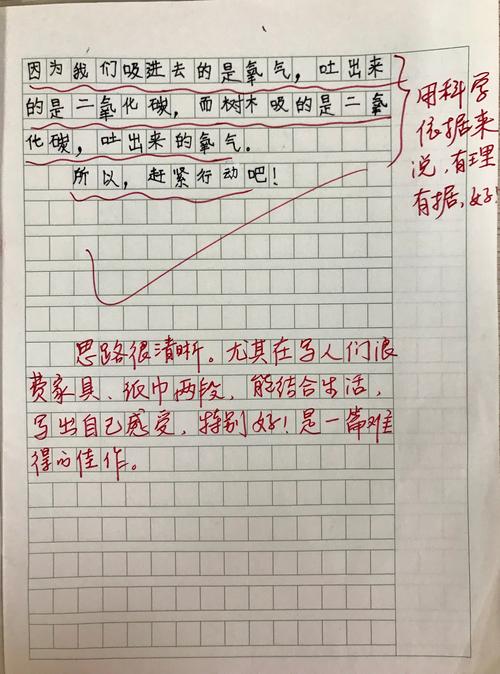 因为我们吸进去的是氧气，吐出来
的是二氧化碳，而树木吸的是二氧
化碳，吐出来的氧气。
所以，赶紧行动吧！
用科学
依据来
说，有理
有据，好！
思路很清晰。尤其在写人们浪
费家具、纸巾两段，能结合生活，
写出自己感受，特别好！是一篇难
得的佳作。